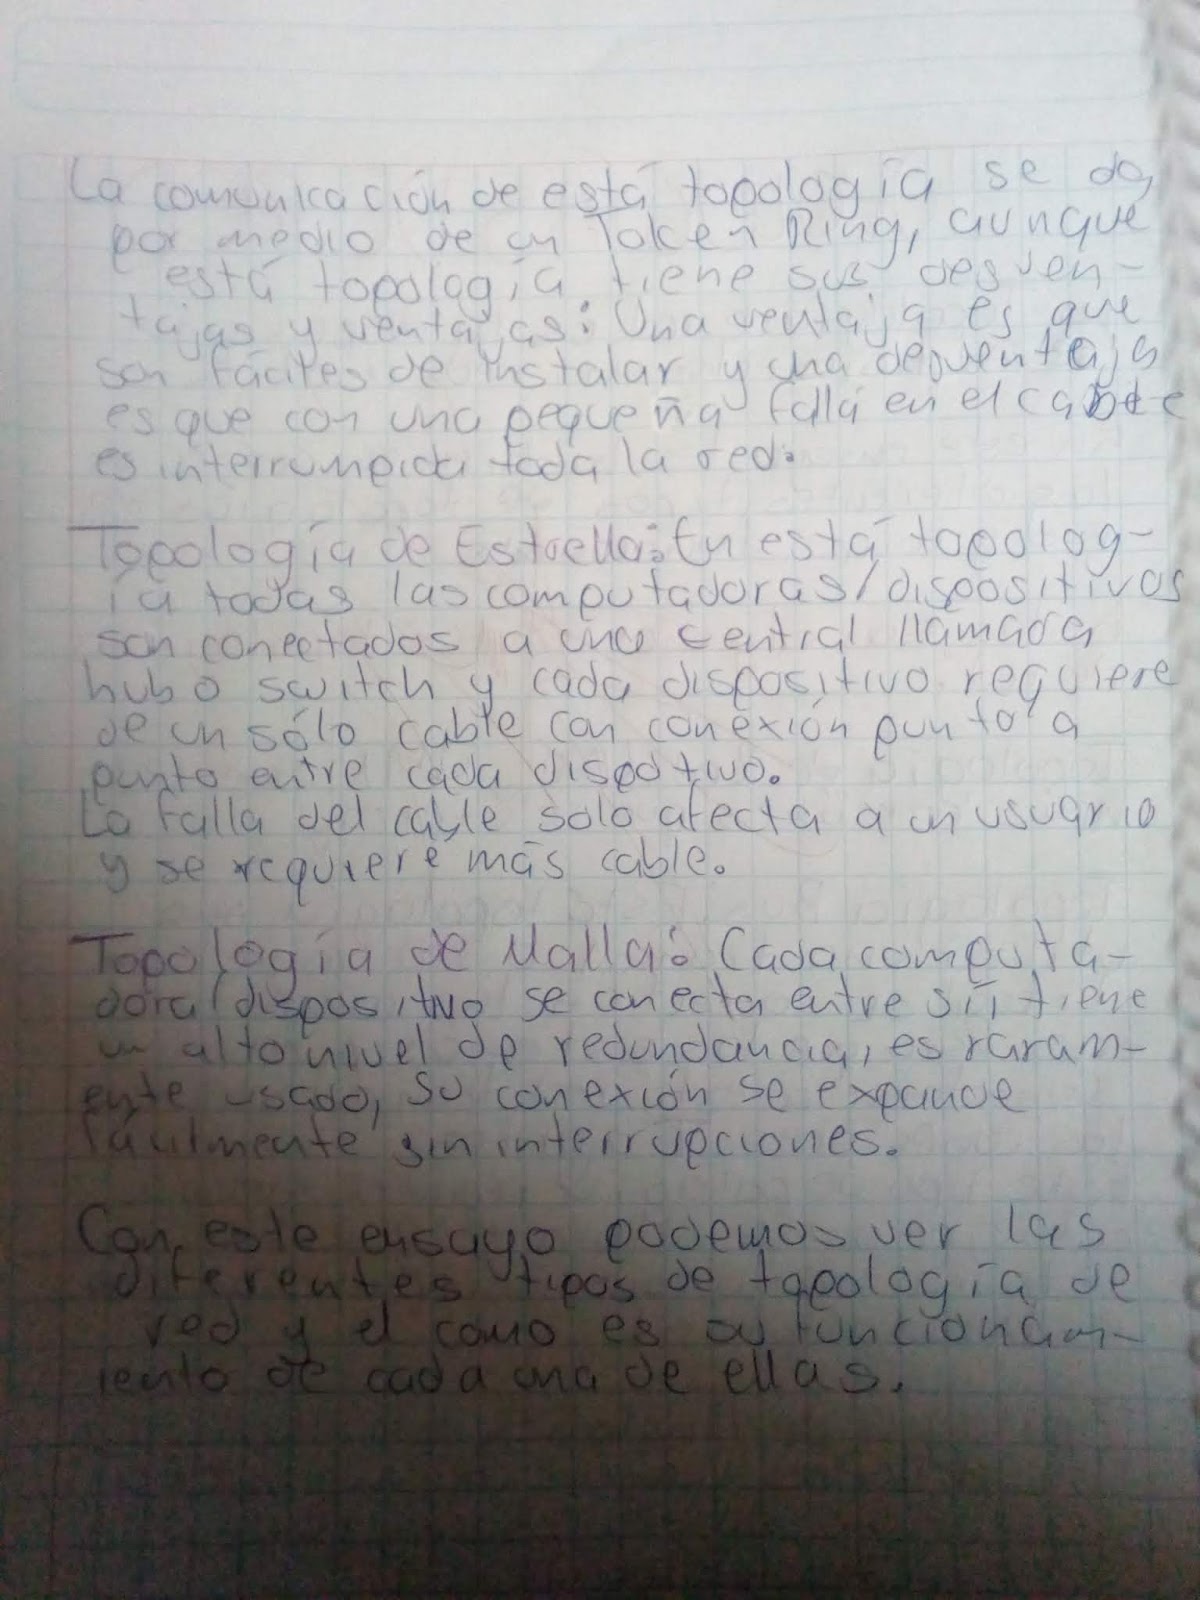 La comunicación de está topología se da
por medio de un Token Ring, aunque
está topología tiene sus desven-
tajas y ventajas: Una ventaja es que
son fáciles de instalar y una desventaja
es que con una pequeña falla en el cable
es interrumpida toda la red.
Topología de Estrella: En está topolog-
ía todas las computadoras/dispositivos
son conectados a una central llamada
hub o switch y cada dispositivo requiere
de un sólo cable con conexión punto a
punto entre cada dispotivo.
La falla del cable solo afecta a un usuario
y se requiere más cable.
Topología de Malla: Cada computa-
dora/dispositivo se conecta entre sí, tiene
un alto nivel de redundancia, es raram-
ente usado, su conexión se expande
fácilmente sin interrupciones.
Con este ensayo podemos ver las
diferentes tipos de topología de
red y el como es su funcionam-
iento de cada una de ellas.